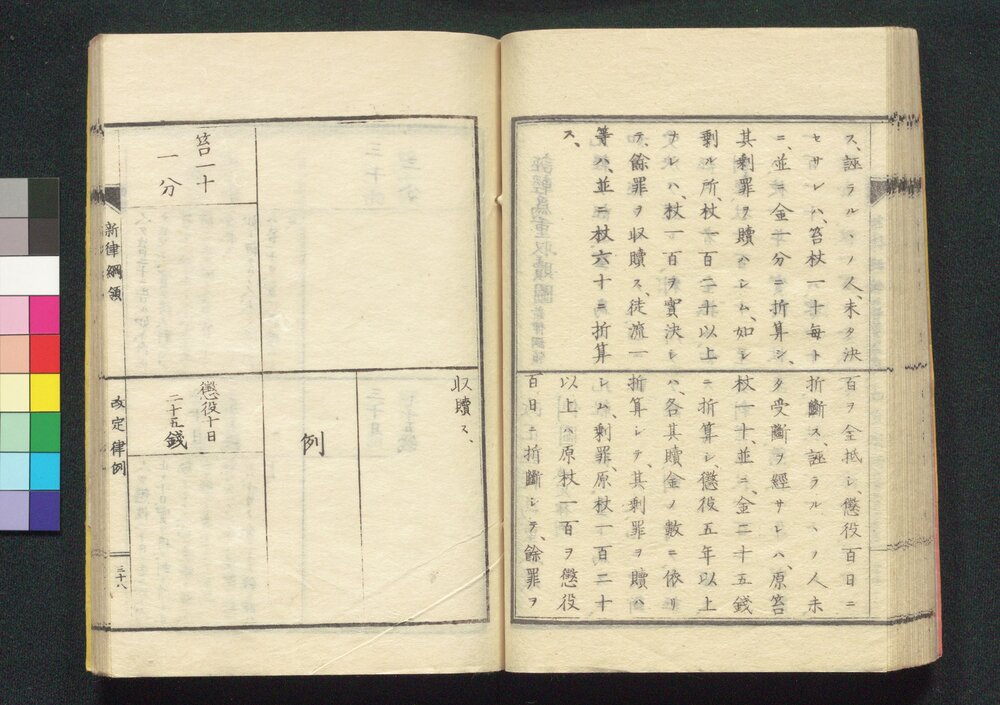 ス、誣ラルヽノ人、未タ決
セサレハ、笞杖一十毎ト
ニ、並ニ金一分ニ折算シ、
其剰罪ヲ贖ハシム、如シ
剰ル所、杖一百二十以上
ナレハ、杖一百ヲ實決シ
テ、餘罪ヲ収贖ス、徒流一
等ハ、並ニ杖六十ニ折算
ス、
百ヲ全抵シ、懲役百日ニ
折斷ス、誣ラルヽノ人未
タ受斷ヲ經サレハ、原笞
杖一十、並ニ、金二十五錢
ニ折算シ、懲役五年以上
ハ、各其贖金ノ數ニ依リ
折算シテ、其剰罪ヲ贖ハ
シム、剰罪、原杖一百二十
以上ハ、原杖一百ヲ懲役
百日ニ折斷シテ、餘罪ヲ
収贖ス、
例
笞一十
一分
懲役十日
二十五錢
新律綱領
改定律例
三十八